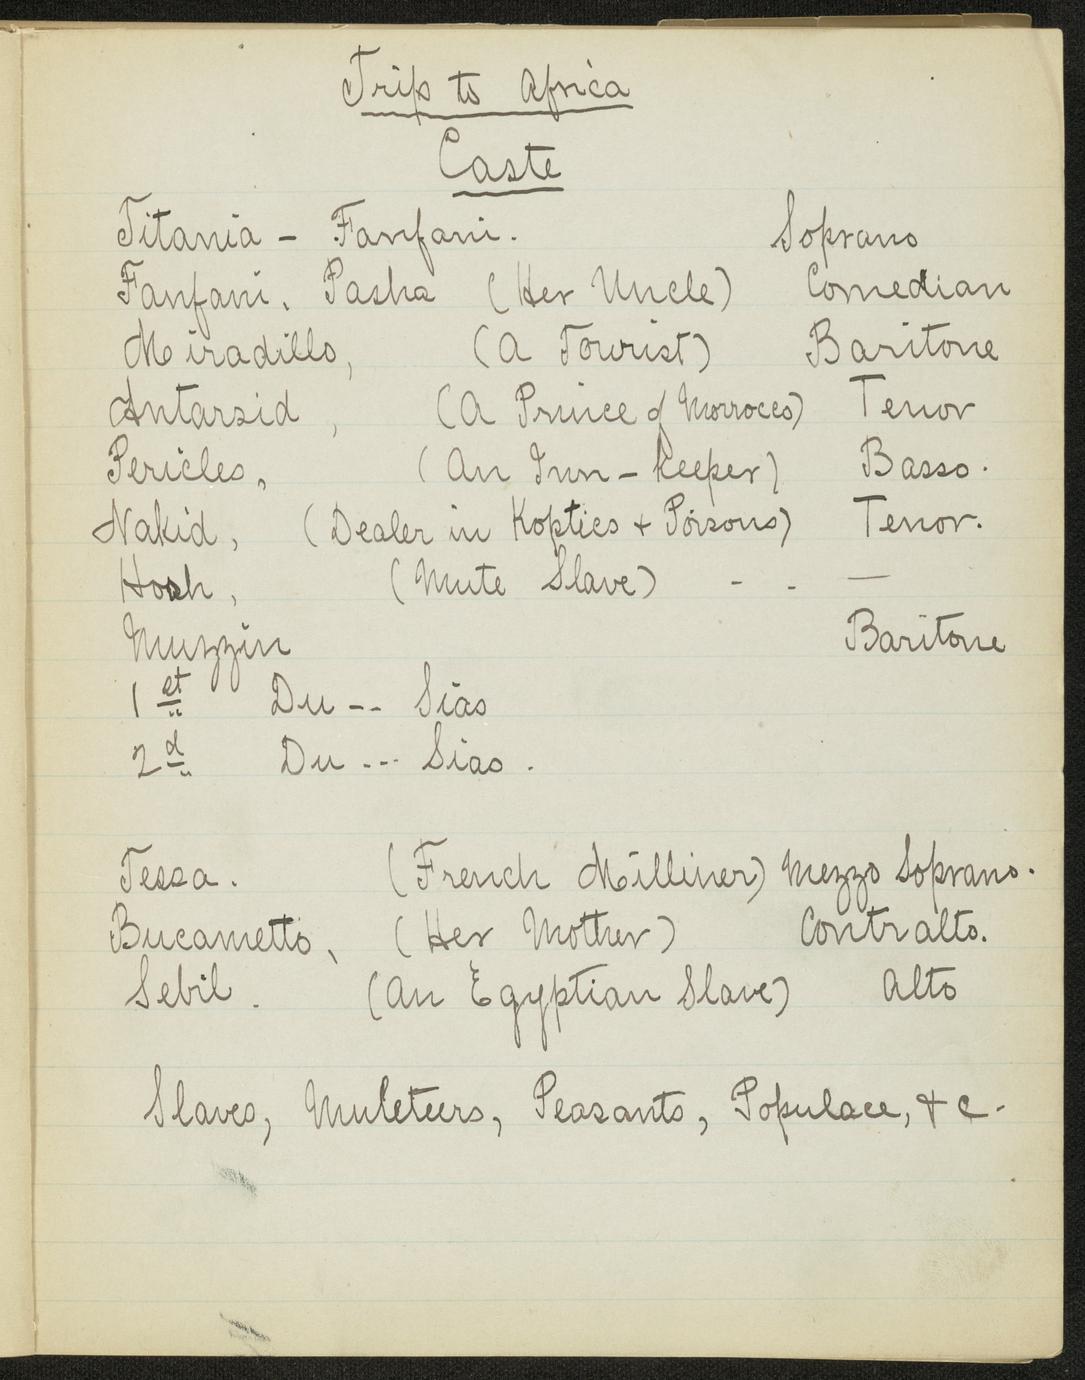 Trip to Africa
Caste
Titania - Fanfani. Soprano
Fanfani. Pasha (Her Uncle) Comedian
Miradillo, (A Tourist) Baritone
Antarsid, (A Prince of Morroceo) Tenor
Pericles, (An Inn-keeper) Basso.
Nakid, (Dealer in Kopties + Poisons) Tenor.
Hosh, (Mute Slave) - - —
Muzzin Baritone
1st Du -- Sias
2d Du --- Sias.
Tessa. (French Milliner) Mezzo Soprano.
Bucametto, (Her Mother) Contralto.
Sebil. (An Egyptian Slave) Alto
Slaves, Muleteers, Peasants, Populace, + c.